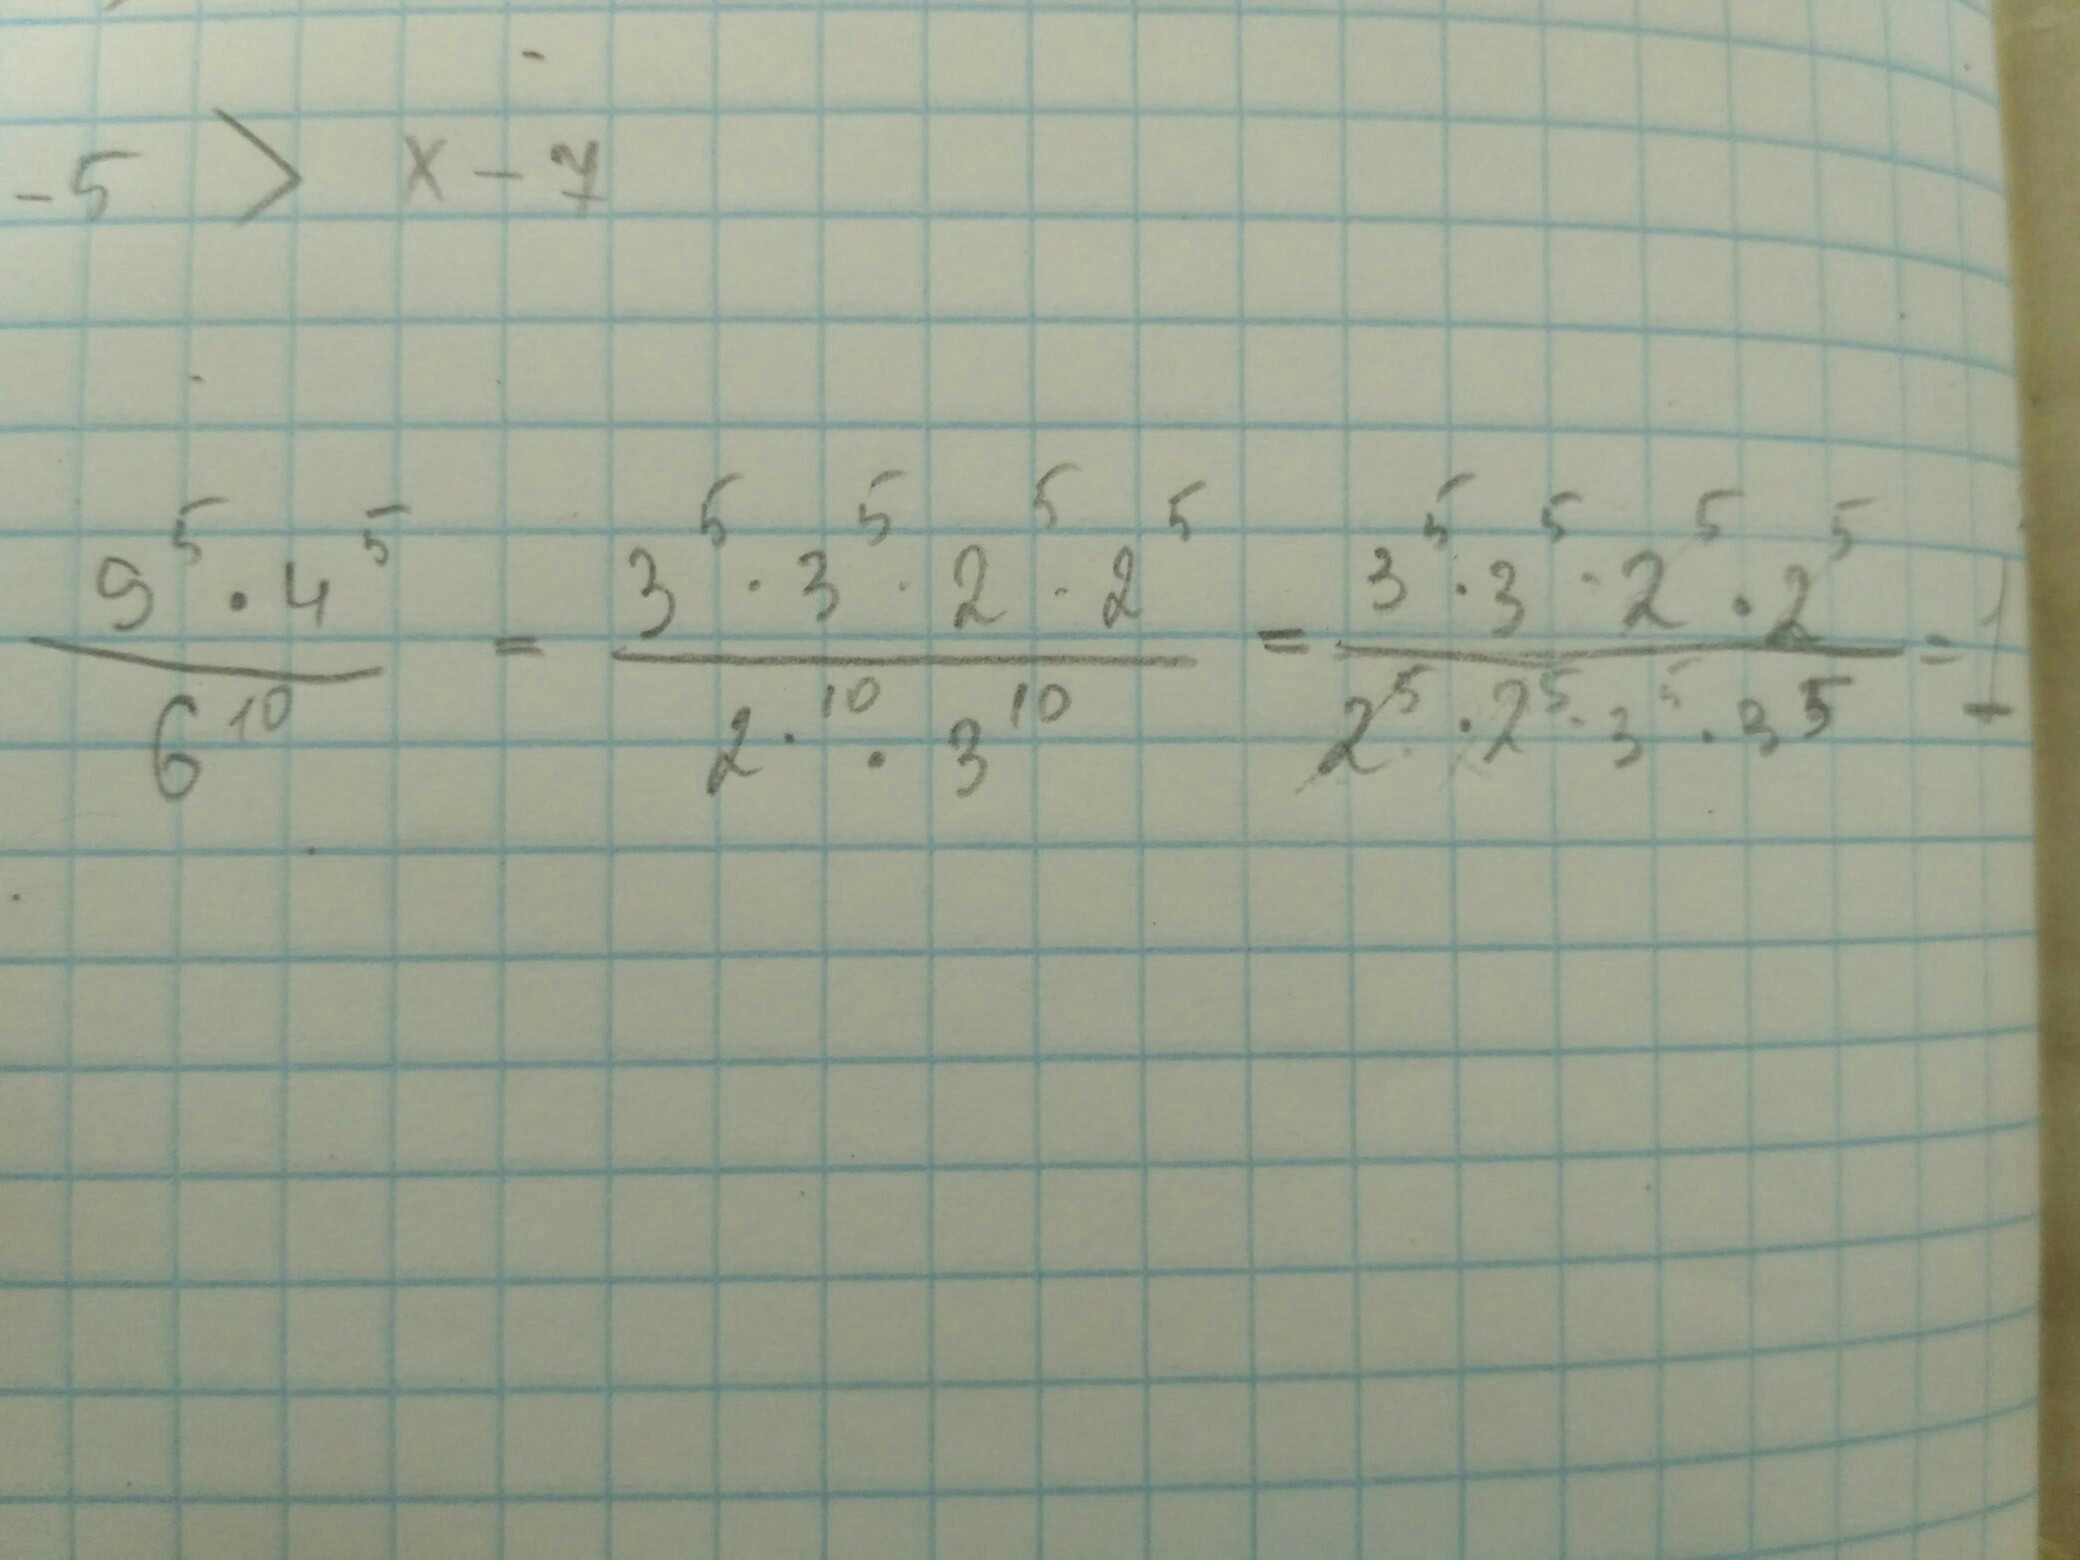 -5 > x - 7
9^5 · 4^5 / 6^10 = 3^5 · 3^5 · 2^5 · 2^5 / 2^10 · 3^10 = 3^5 · 3^5 · 2^5 · 2^5 / 2^5 · 2^5 · 3^5 · 3^5 = 1